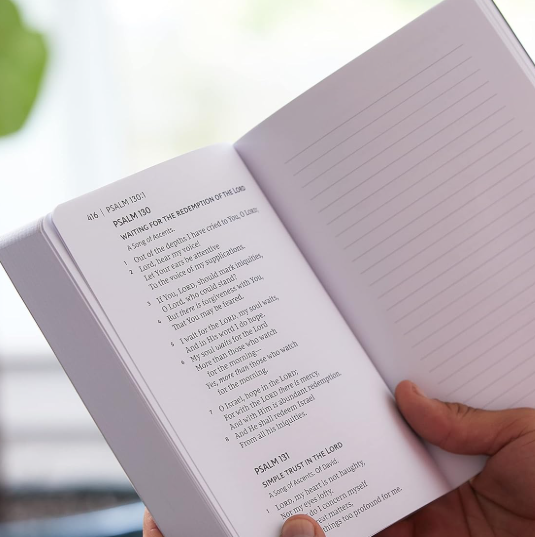 416 | PSALM 130:1
PSALM 130
WAITING FOR THE REDEMPTION OF THE LORD
A Song of Ascents.
1 Out of the depths I have cried to You, O LORD;
2 Lord, hear my voice!
Let Your ears be attentive
To the voice of my supplications.
3 If You, LORD, should mark iniquities,
O Lord, who could stand?
4 But there is forgiveness with You,
That You may be feared.
5 I wait for the LORD, my soul waits,
And in His word I do hope.
6 My soul waits for the Lord
More than those who watch
for the morning—
Yes, more than those who watch
for the morning.
7 O Israel, hope in the LORD;
For with the LORD there is mercy,
And with Him is abundant redemption.
8 And He shall redeem Israel
From all his iniquities.
PSALM 131
SIMPLE TRUST IN THE LORD
A Song of Ascents. Of David.
1 LORD, my heart is not haughty,
Nor my eyes lofty.
do I concern myself
great matters,
things too profound for me.